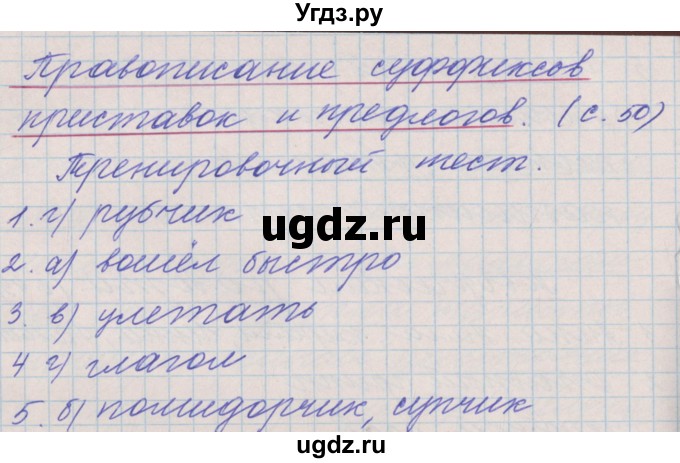 Угдз.ру
Правописание суффиксов
приставок и предлогов. (с. 50)
Тренировочный тест.
1. г) рубчик
ugdz.ru
2. а) вошёл быстро
3. в) улетать
ugdz.ru
4 г) глагол
5. б) помидорчик, супчик
ugdz.ru